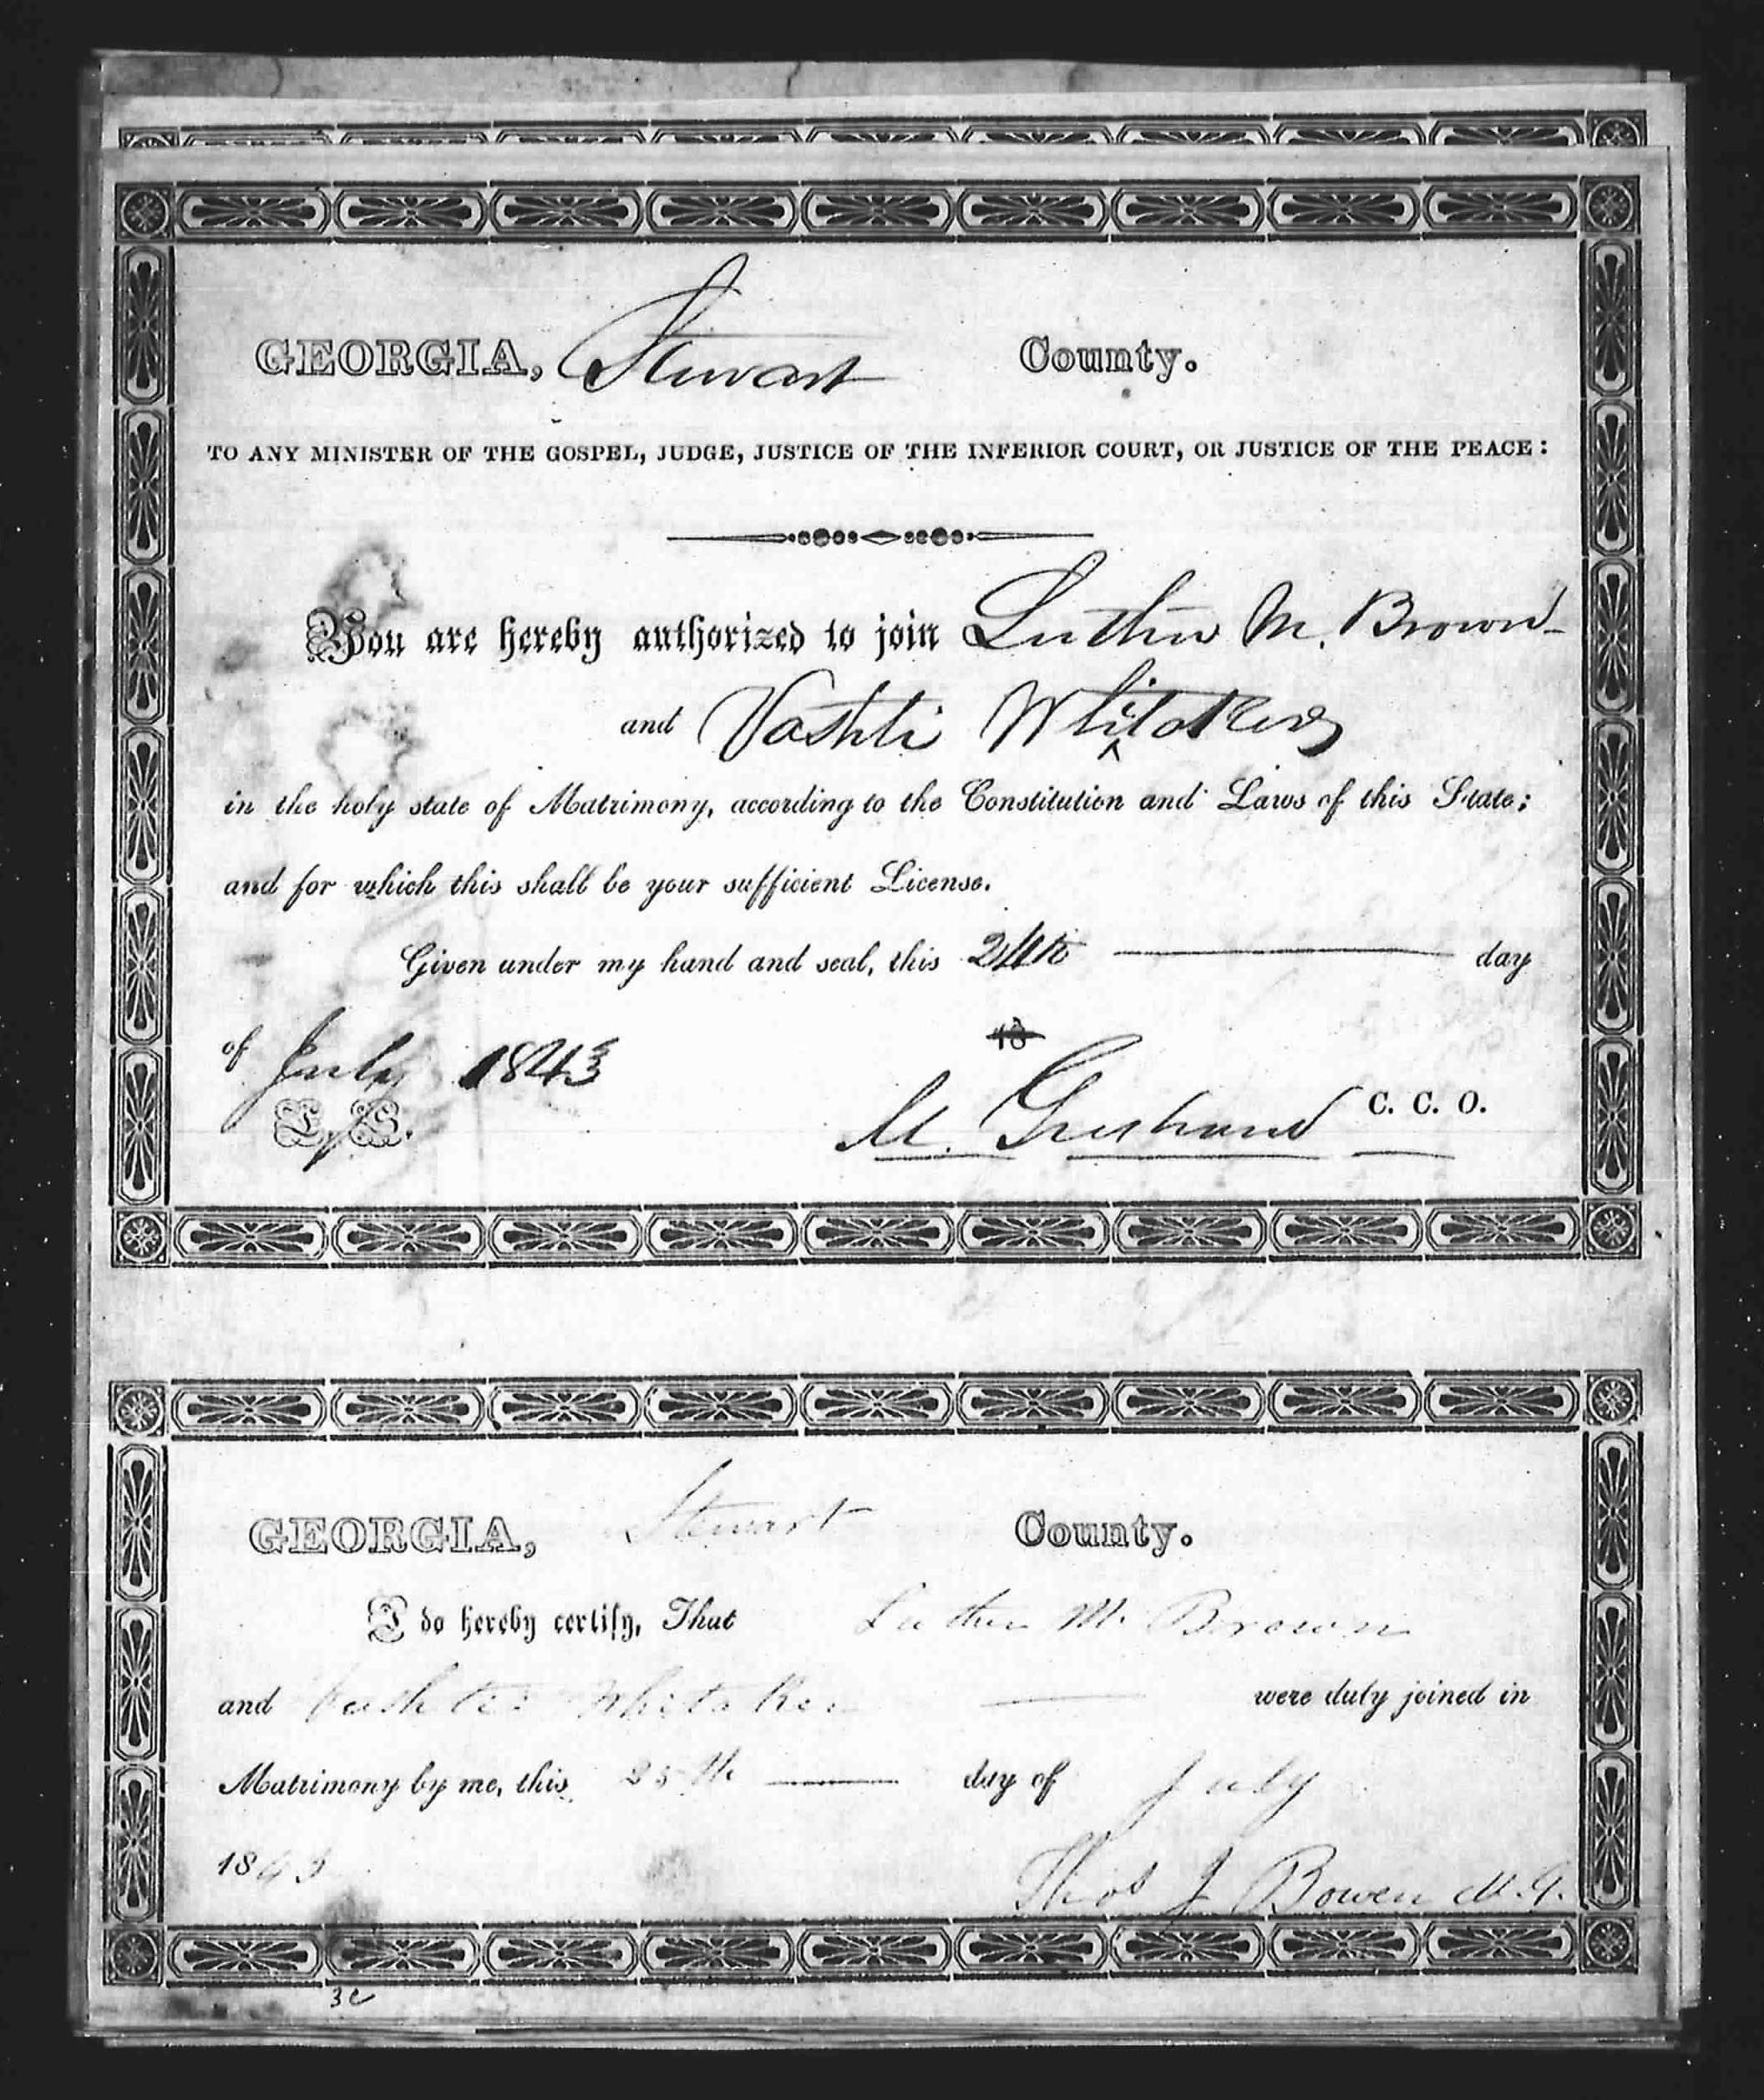 GEORGIA, Stewart County.
TO ANY MINISTER OF THE GOSPEL, JUDGE, JUSTICE OF THE INFERIOR COURT, OR JUSTICE OF THE PEACE:
You are hereby authorized to join Luther M. Brown
and Vashti Whitaker
in the holy state of Matrimony, according to the Constitution and Laws of this State;
and for which this shall be your sufficient License.
Given under my hand and seal, this 24th day
of July 1843 18
L. S. M. C. C. O.
GEORGIA, Stewart County.
I do hereby certify, That Luther M. Brown
and Vashti Whitaker were duly joined in
Matrimony by me, this 25th day of July
1843
Thos J Bowen M.G.